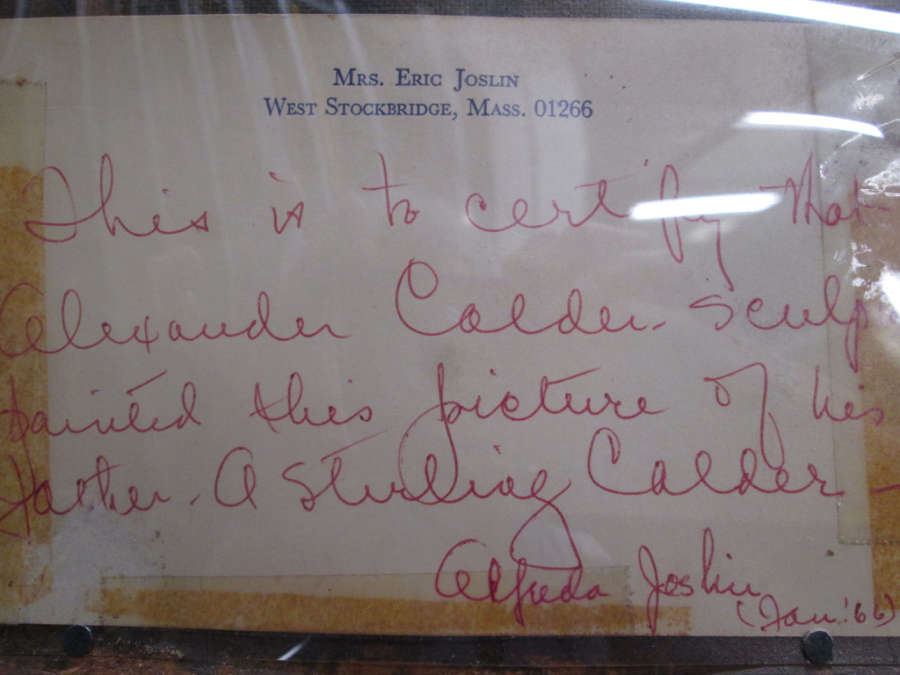 Mrs. Eric Joslin
West Stockbridge, Mass. 01266
This is to certify that
Alexander Calder - Sculp
painted this picture of his
father. A Sterling Calder -
Alfreda Joslin
(Jan. '66)